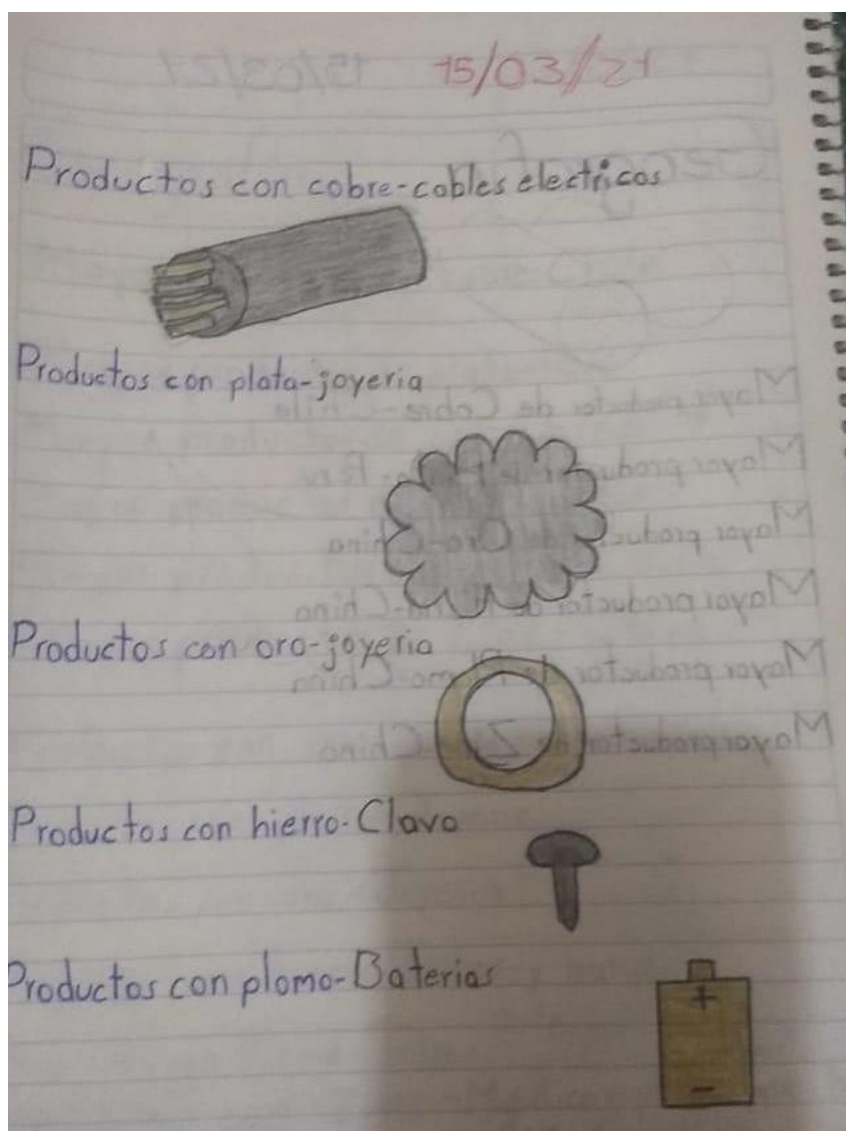 15/03/21
Productos con cobre-cables electricos
Productos con plata-joyeria
Productos con oro-joyeria
Productos con hierro-Clavo
Productos con plomo-Baterias
+
-